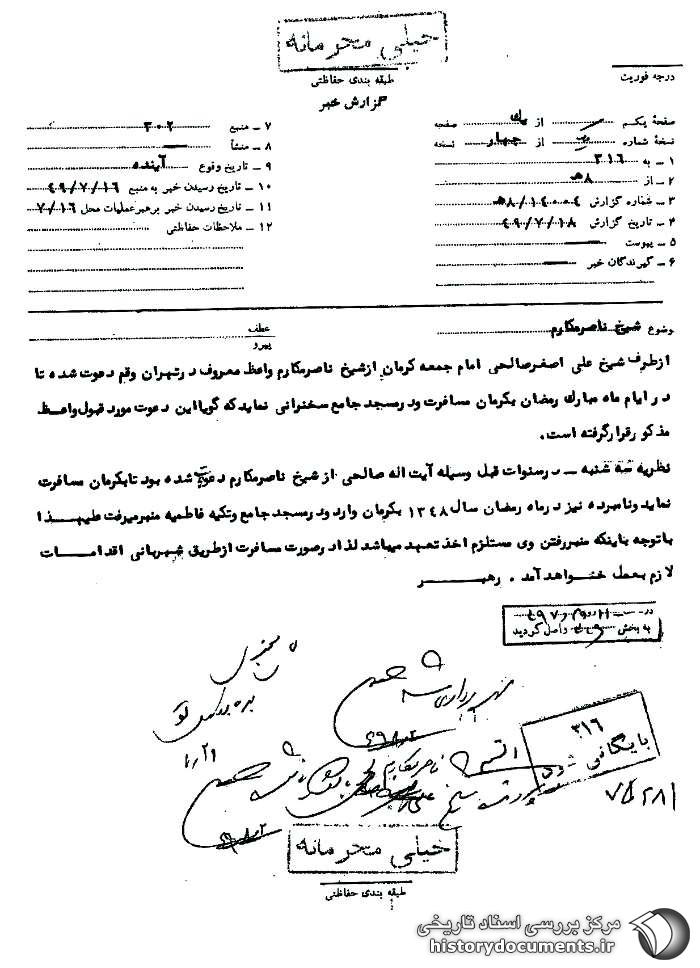 خیلی محرمانه
طبقه بندی حفاظتی
گزارش خبر
درجه فوریت
صفحهٔ یکم از یک صفحه
نسخهٔ شماره از چهار نسخه
۱ ـ به ۳۱۶
۲ ـ از ۸ﻫ
۳ ـ شماره گزارش ۸/۱۴۰۰۴ﻫ
۴ ـ تاریخ گزارش ۴۹/۷/۱۸
۵ ـ پیوست
۶ ـ گیرندگان خبر
۷ ـ منبع ۳۰۲
۸ ـ منشأ
۹ ـ تاریخ وقوع آینده
۱۰ ـ تاریخ رسیدن خبر به منبع ۴۹/۷/۱۶
۱۱ ـ تاریخ رسیدن خبر برهبر عملیات محل ۷/۱۶
۱۲ ـ ملاحظات حفاظتی
موضوع شیخ ناصر مکارم
عطف
پیرو
از طرف شیخ علی اصغر صالحی امام جمعه کرمان از شیخ ناصر مکارم واعظ معروف در تهران وقم دعوت شده تا
در ایام ماه مبارک رمضان بکرمان مسافرت ودر مسجد جامع سخنرانی نماید که گویا این دعوت مورد قبول واعظ
مذکور قرار گرفته است.
نظریه سه شنبه ـ در سنوات قبل وسیله آیت اله صالحی از شیخ ناصر مکارم دعوت شده بود تا بکرمان مسافرت
نماید ونامبرده نیز در ماه رمضان سال ۱۳۴۸ بکرمان وارد ودر مسجد جامع وتکیه فاطمیه منبر میرفت علیهذا
با توجه باینکه منبر رفتن وی مستلزم اخذ تعهد میباشد لذا در صورت مسافرت از طریق شهربانی اقدامات
لازم بعمل خواهد آمد . رهبر
در
به بخش واصل گردید
بهره برداری شد
۴۹/۸/۲
۳۱۶
بایگانی شود
۷/۲۸
ناصر مکارم
شیخ
۴۹/۸/۲
خیلی محرمانه
طبقه بندی حفاظتی
مرکز بررسی اسناد تاریخی
historydocuments.ir